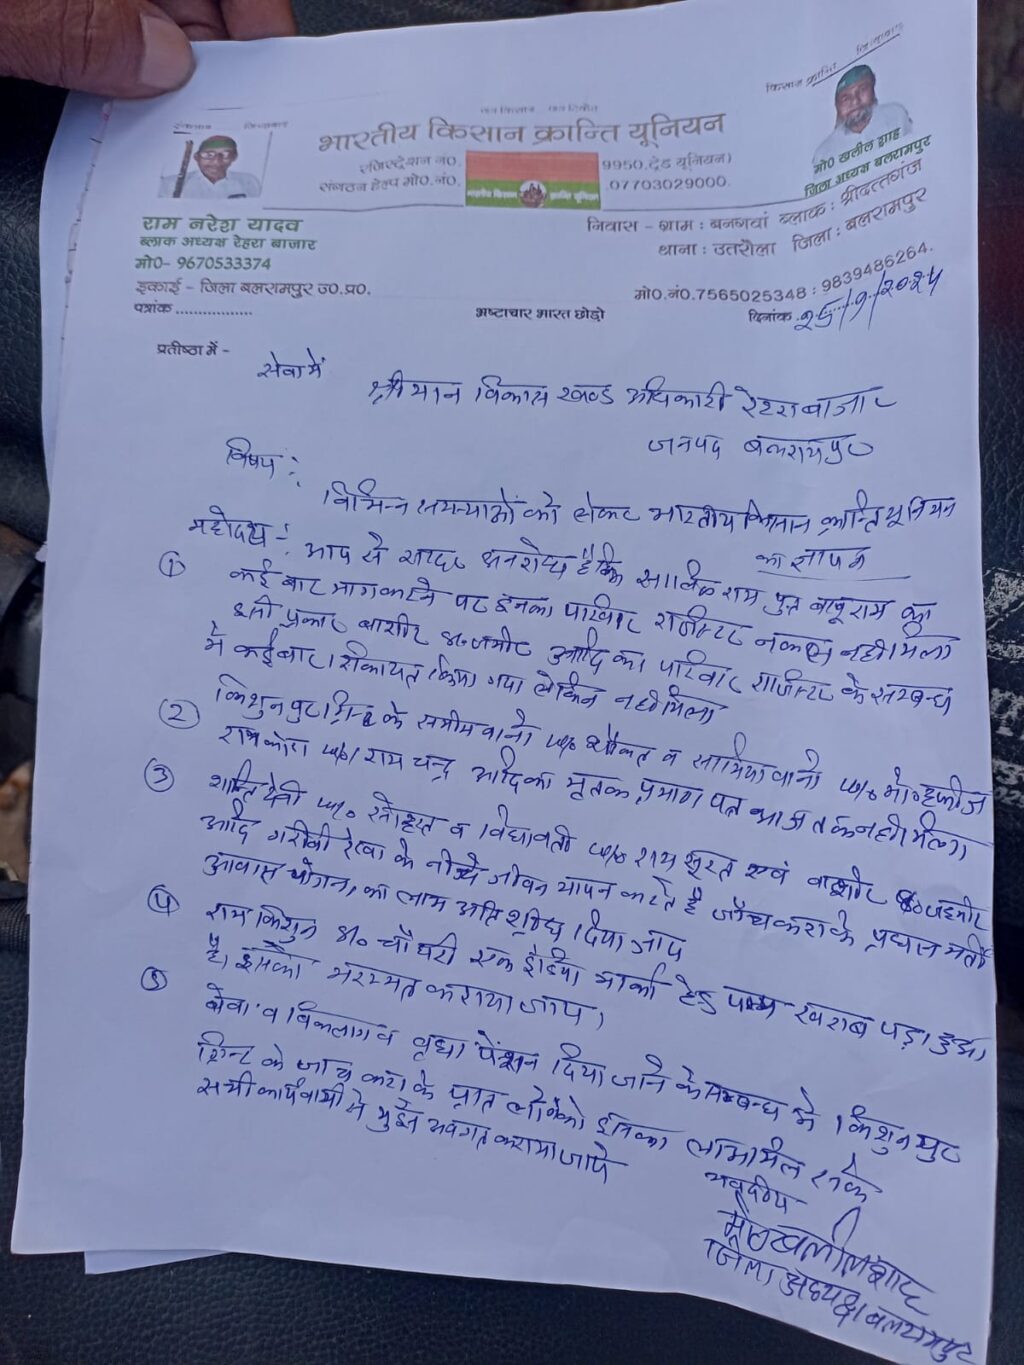 जय किसान जय जवान
इंकलाब जिन्दाबाद
किसान क्रान्ति जिन्दाबाद
भारतीय किसान क्रान्ति यूनियन
रजिस्ट्रेशन नं0. 9950.ट्रेड यूनियन)
संगठन हेल्प मो0.नं0. .07703029000.
भारतीय किसान क्रान्ति यूनियन
मो0 खलील शाह
जिला अध्यक्ष बलरामपुर
राम नरेश यादव
ब्लाक अध्यक्ष रेहरा बाजार
मो0- 9670533374
इकाई - जिला बलरामपुर उ0.प्र0.
पत्रांक .................
निवास - ग्राम : बनगवां ब्लाक : श्रीदत्तगंज
थाना : उतरौला जिला : बलरामपुर
मो0.नं0.7565025348 : 9839486264.
भष्टाचार भारत छोड़ो
दिनांक
प्रतीष्ठा में -
सेवा में
श्रीमान विकास खण्ड अधिकारी रेहराबाजार
जनपद बलरामपुर
विषय :
विभिन्न समस्याओं को लेकर भारतीय किसान क्रान्ति यूनियन
का ज्ञापन
महोदय : आप से सादर अनरोध है कि राम पुत्र बाबूराम का
① कई बार भाग करने पर इनका परिवार रजिस्टर नकल नही मिला
इसी प्रकार आदि का परिवार रजिस्टर के सम्बन्ध
मे कई बार शिकायत किया गया लेकिन नही मिला
② किशुनपुर ग्रिन्ट के व
राम चन्द्र आदि का मृतक प्रमाण पत्र आज तक नही मिला
③ शान्ति देवी व विद्यावती एवं
आदि गरीबी रेखा के नीचे जीवन यापन करते है जाँच कराके प्रधान मंत्री
आवास योजना का लाभ अति शीघ्र दिया जाय
④ राम किशुन चौधरी एक इंडिया मार्का हैंड पम्प खराब पड़ा हुआ
है। इसको मरम्मत कराया जाय।
⑤ बेवा व विकलांग व वृधा पेंशन दिया जाने के सम्बन्ध मे किशुनपुर
ग्रिन्ट के जाच करा के पात्र लोगो को इसका लाभ मिल सके
सभी कार्यवाही से मुझे अवगत कराया जाये
भवदीय
मो0 खलील शाह
जिला अध्यक्ष बलरामपुर